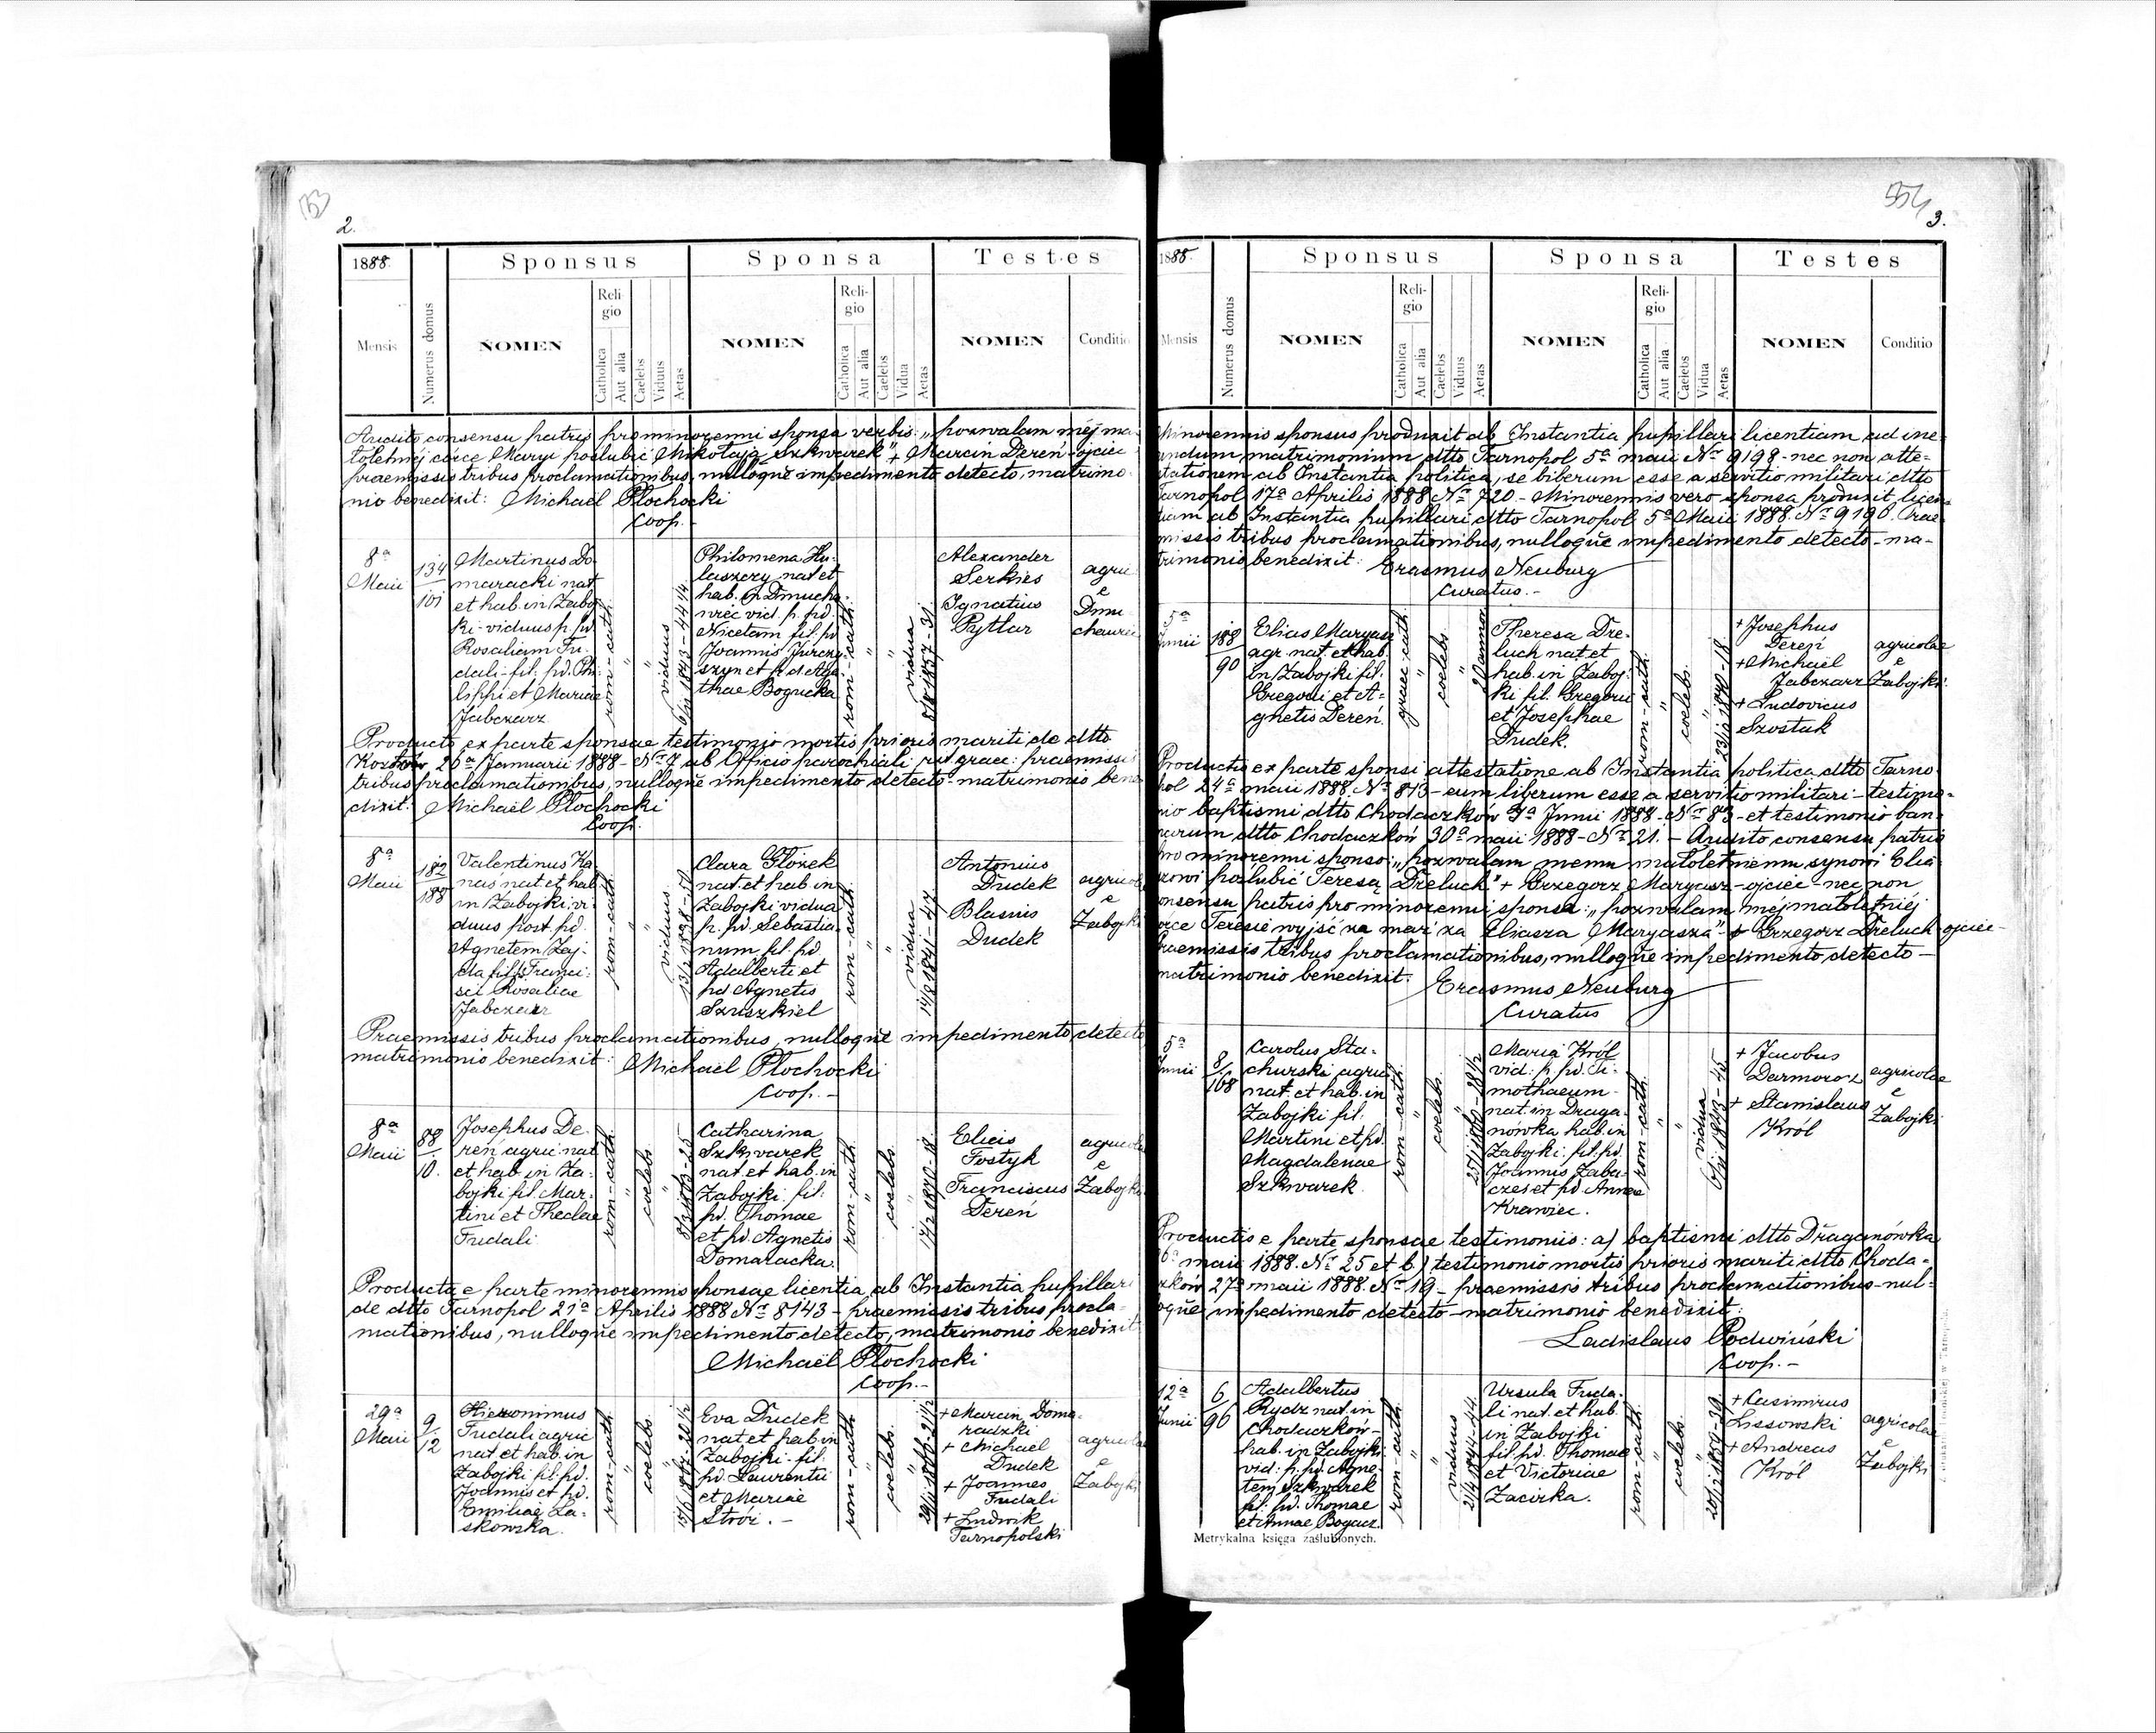 2.
1888.
Mensis
Numerus domus
Sponsus
NOMEN
Religio
Catholica
Aut alia
Caelebs
Viduus
Aetas
Sponsa
NOMEN
Religio
Catholica
Aut alia
Caelebs
Vidua
Aetas
Testes
NOMEN
Conditio
Audito consensu patris pro minorenni sponsa verbis: „pozwalam mej ma-
toletniej córce Maryi poślubić Mikołaja Szkwarek" + Marcin Dereń ojciec
praemissis tribus proclamationibus, nulloque impedimento detecto, matrimo-
nio benedixit: Michael Płochocki
Coop.
8ª
Maii
134
101
Martinus Do-
maracki nat.
et hab. in Zaboj-
ki viduus p. pd.
Rosaliam Fu-
dali fil. pd. Phi-
lippi et Mariae
Jabczarz
rom-cath.
"
viduus
Philomena Hu-
laszczy nat et
hab. in Dmucha-
wiec vid. p. pd.
Nicetam fil. pd.
Joannis Jurczy-
szyn et pd. Aga-
thae Bogucka
rom-cath.
"
vidua
Alexander
Serkies
Ignatius
Pytlar
agric
e
Dmu
chawiec
Producto ex parte sponsae testimonio mortis prioris mariti de dtto
26ª Januarii 1888 - Nr 7 ab Officio parochiali rit. graec: praemissis
tribus proclamationibus, nulloque impedimento detecto - matrimonio bene
dixit: Michael Płochocki
Coop.
8ª
Maii
182
188
Valentinus Ka-
naś nat et hab.
in Zabojki vi-
duus post pd.
Agnetem Zaj-
da fil. Franci-
sci Rosaliae
Jabczarz
rom-cath.
"
viduus
Clara Głożek
nat. et hab. in
Zabojki vidua
p. pd. Sebastia-
num fil. pd
Adalberti et
pd Agnetis
Szuszkiel
rom-cath.
"
vidua
14/8 1841-47
Antonius
Dudek
Blasius
Dudek
agricolae
e
Zabojki
Praemissis tribus proclamationibus, nulloque impedimento detecto
matrimonio benedixit: Michael Płochocki
Coop. -
8ª
Maii
88
10.
Josephus De-
reń agric nat
et hab. in Za-
bojki fil. Mar-
tini et Theclae
Fudali
rom-cath.
"
coelebs
"
Catharina
Szkwarek
nat. et hab. in
Zabojki. fil:
pd. Thomae
et pd. Agnetis
Domaracka.
rom-cath.
"
coelebs
"
Elias
Fostyk
Franciscus
Dereń
agricolae
e
Zabojki
Producta e parte minorennis sponsae licentia ab Instantia pupillari
de dtto Tarnopol 21ª Aprilis 1888 Nr 8143 - praemissis tribus procla-
mationibus, nulloque impedimento detecto, matrimonio benedixit
Michaël Płochocki
Coop. -
29ª
Maii
9
12
Hieronimus
Fudali agric
nat et hab. in
Zabojki fil. pd.
Joannis et pd.
Emiliae La-
skowska.
rom-cath.
"
coelebs
"
Eva Dudek
nat et hab in
Zabojki. fil.
pd. Laurentii
et Mariae
Stróż. -
rom-cath
"
coelebs
"
+ Marcin Doma-
radzki
+ Michael
Dudek
+ Joannes
Fudali
+ Ludwik
Tarnopolski
agricolae
e
Zabojki
3.
1888.
Mensis
Numerus domus
Sponsus
NOMEN
Religio
Catholica
Aut alia
Caelebs
Viduus
Aetas
Sponsa
NOMEN
Religio
Catholica
Aut alia
Caelebs
Vidua
Aetas
Testes
NOMEN
Conditio
Minorennis sponsus produxit ab Instantia pupillari licentiam ad ine-
undum matrimonium dtto Tarnopol 5ª maii Nr 9198 - nec non atte-
stationem ab Instantia politica, se liberum esse a servitio militari dtto
Tarnopol 17ª Aprilis 1888 Nr 720. - Minorennis vero sponsa produxit licen-
tiam ab Instantia pupillari dtto Tarnopol 5ª Maii 1888. Nr 9196. Prae-
missis tribus proclamationibus, nulloque impedimento detecto - ma-
trimonio benedixit: Erasmus Neuburg
Curatus. -
5ª
Junii
188
90
Elias Maryasz
agr. nat. et hab.
in Zabojki fil:
Gregorii et A-
gnetis Dereń.
graec-cath.
"
coelebs.
"
Theresa Dre-
luch nat. et
hab. in Zaboj-
ki fil. Gregorii
et Josephae
Dudek.
rom-cath.
"
coelebs.
"
+ Josephus
Dereń
+ Michael
Jabczarz
+ Ludovicus
Szostak
agricolae
e
Zabojki.
Productis ex parte sponsi attestatione ab Instantia politica dtto Tarno-
pol 24ª maii 1888. Nr 813 - eum liberum esse a servitio militari - testimo-
nio baptismi dtto Chodaczków 3ª Junii 1888 - Nr 83 - et testimonio ban-
norum dtto Chodaczków 30ª maii 1888 - Nr 21. - Audito consensu patris
pro minorenni sponso: „pozwalam memu małoletniemu synowi Elia-
szowi poślubić Teresą Dreluch" + Grzegorz Maryasz - ojciec - nec non
consensu patris pro minorenni sponsa: „pozwalam mej małoletniej
córce Teresie wyjść za mąż za Eliasza Maryasza" + Grzegorz Dreluch ojciec -
praemissis tribus proclamationibus, nulloque impedimento detecto -
matrimonio benedixit: Erasmus Neuburg
Curatus
5ª
Junii
8
168
Carolus Sta-
churski agric
nat. et hab. in
Zabojki fil.
Martini et pd.
Magdalenae
Szkwarek.
rom-cath.
"
coelebs.
"
Maria Król
vid: p. pd. Ti-
mothaeum
nat. in Draga-
nówka hab. in
Zabojki. fil. pd.
Joannis Zaba-
czes et pd. Annae
Krawiec.
rom-cath.
"
vidua
+ Jacobus
Darmoroz
+ Stanislaus
Król
agricolae
e
Zabojki
Productis e parte sponsae testimoniis: a) baptismi dtto Draganówka
maii 1888. Nr 25 et b) testimonio mortis prioris mariti dtto Choda-
czków 27ª maii 1888. Nr 19 - praemissis tribus proclamationibus - nul-
loque impedimento detecto - matrimonio benedixit:
Ladislaus Podwiński
Coop. -
12ª
Junii
6
96
Adalbertus
Rydz nat. in
Chodaczków -
hab. in Zabojki
vid: p. pd. Agne-
tem Szkwarek
fil. pd. Thomae
et Annae Bogacz.
rom-cath.
"
viduus
21/4 1844-44
Ursula Fuda-
li nat. et hab.
in Zabojki
fil. pd. Thomae
et Victoriae
Zacirka.
rom-cath.
"
coelebs.
"
+ Casimirus
Lissowski
+ Andreas
Król
agricolae
e
Zabojki
Metrykalna księga zaślubionych.